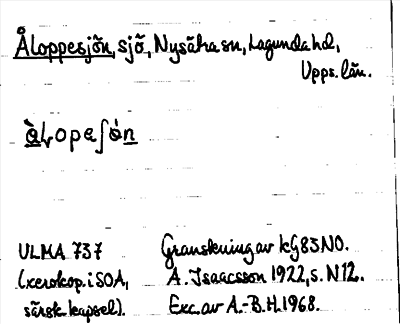 Åloppesjön, sjö, Nysätra sn, Lagunda hd,
Upps. län.
ULMA 737
(xerokop. i SOA,
särsk. kapsel).
Granskning av kG83NO.
A. Isaacsson 1922, s. N12.
Exc. av A.-B. H. 1968.